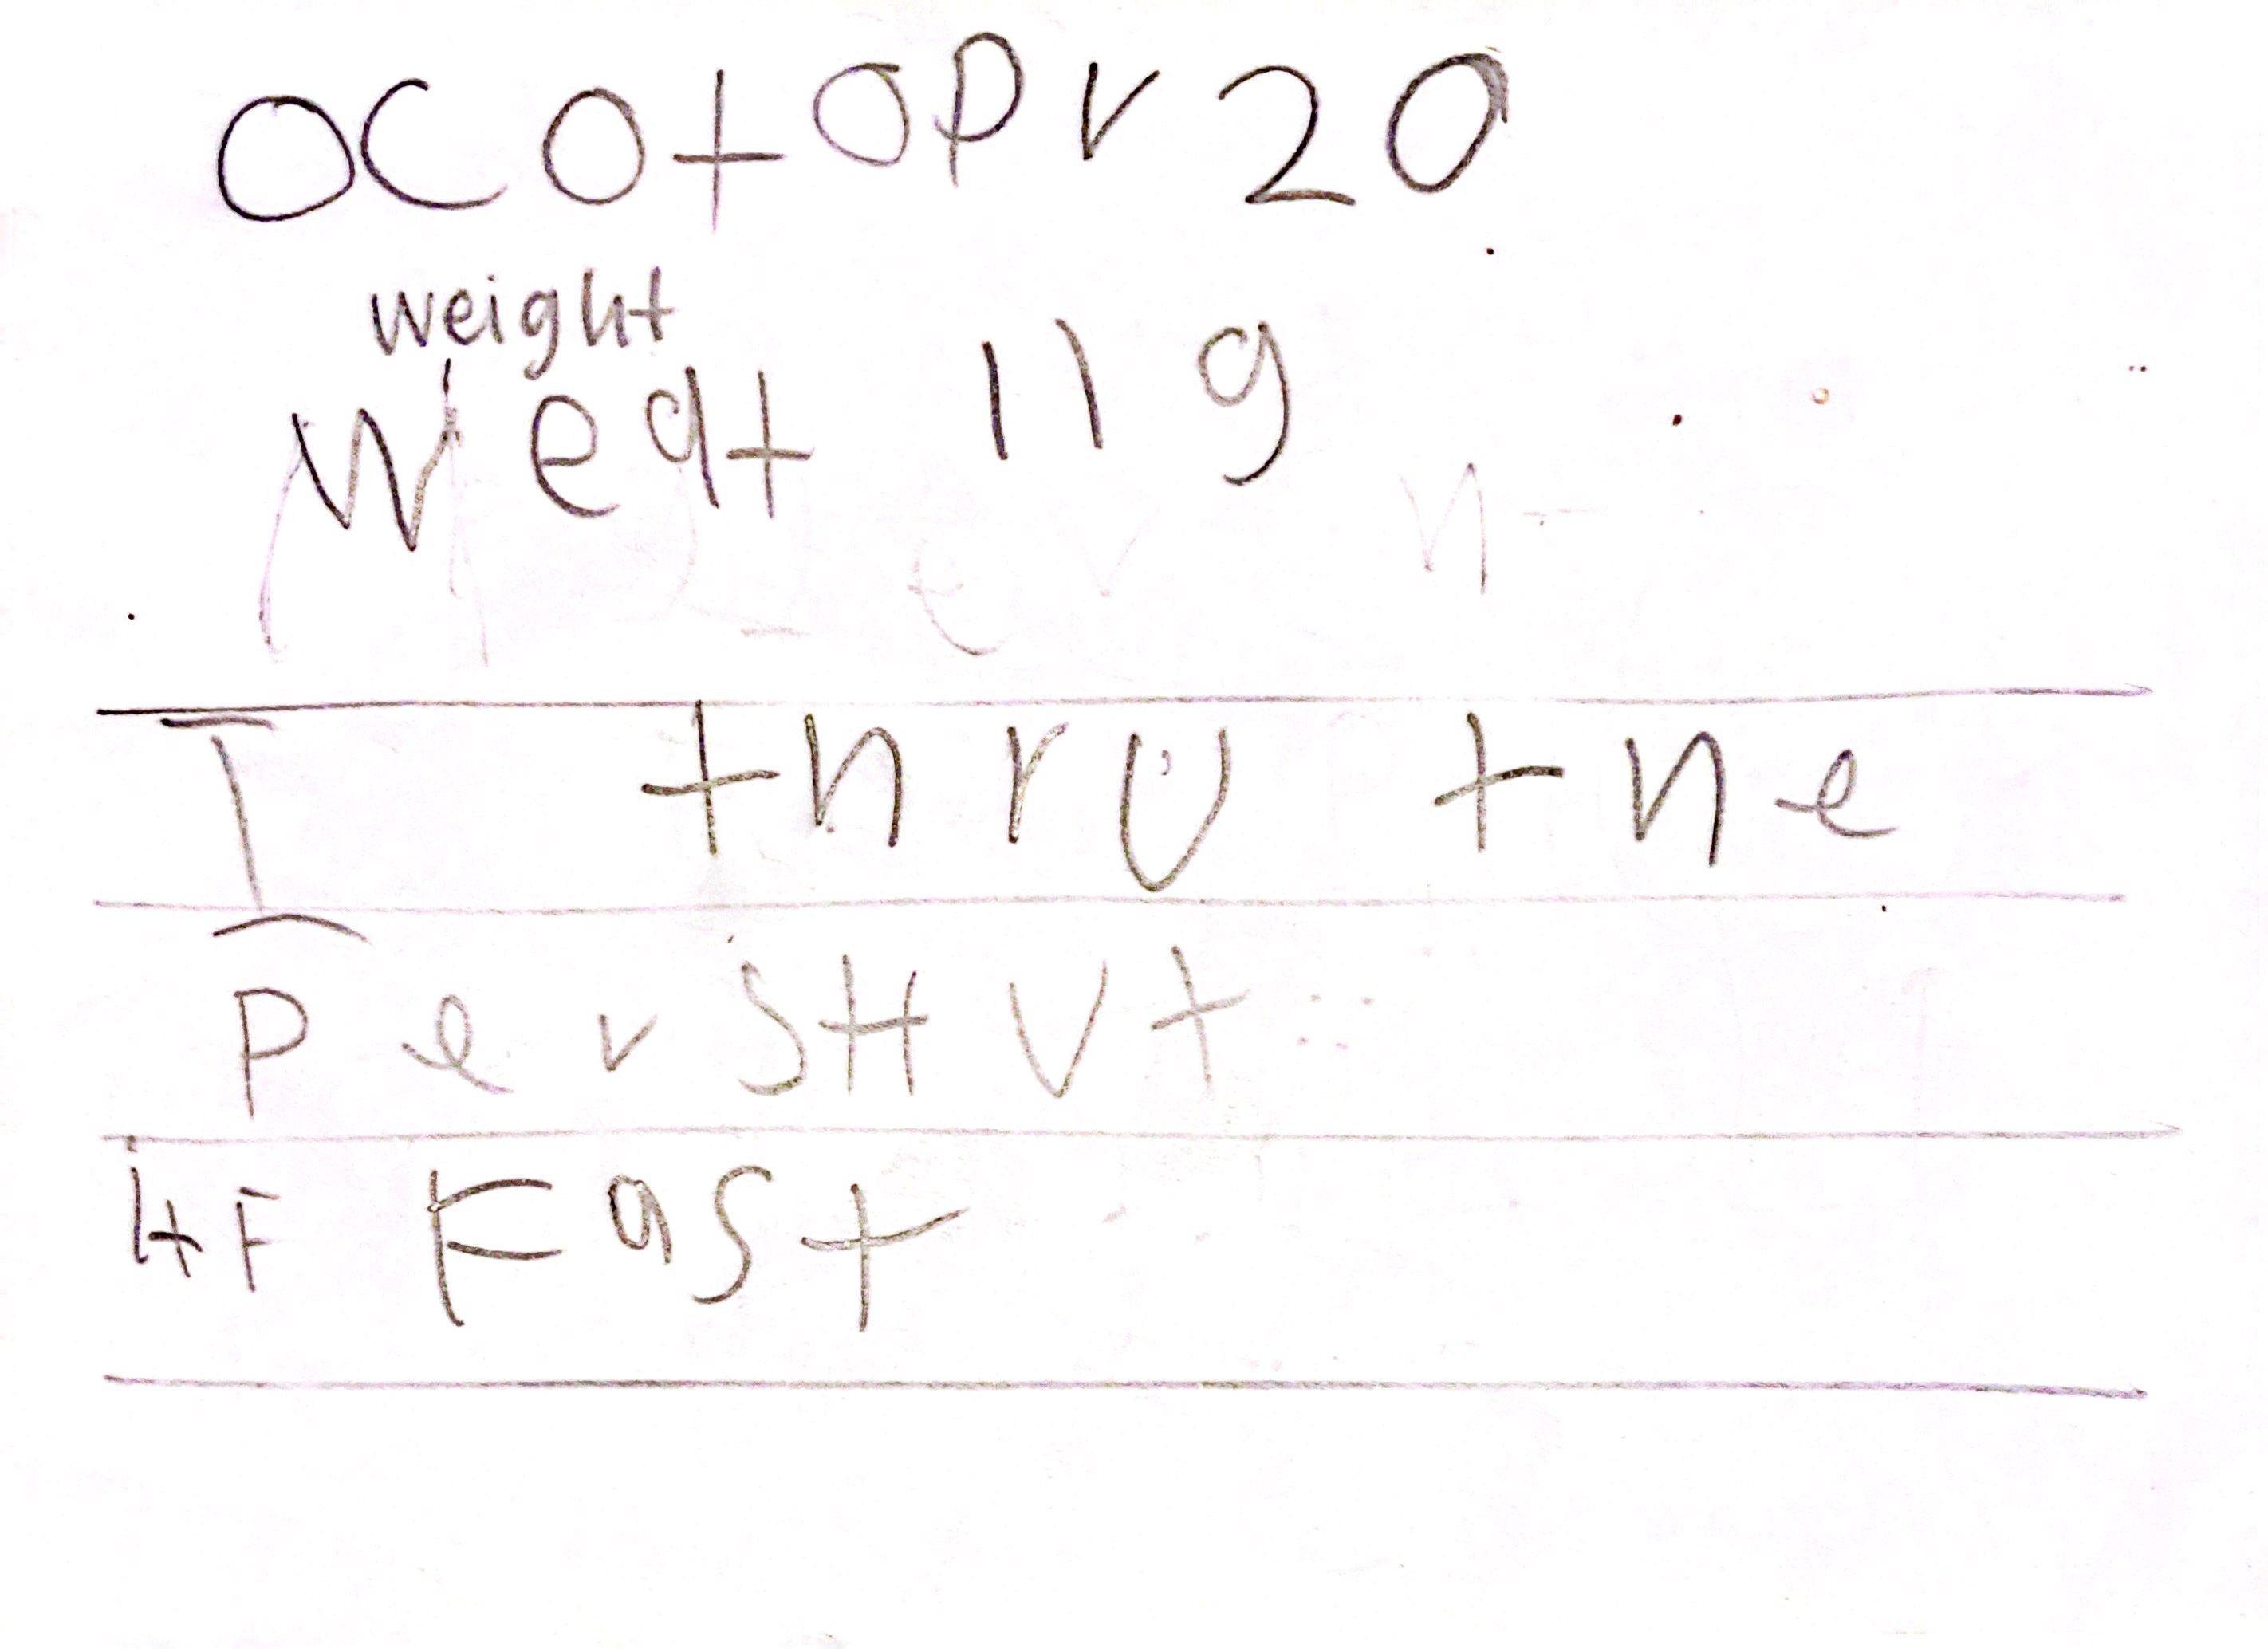 OCOtOPr 20
weight
Weat 11 g
I thru the
PerSHUt
it F Fast